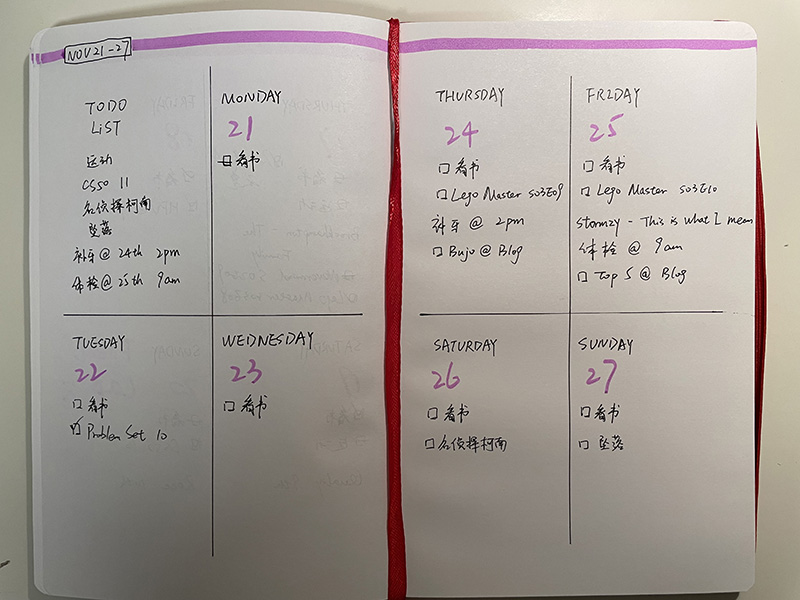 NOV 21-27
TODO
LIST
运动
CS50 11
名侦探柯南
坠落
补牙 @ 24th 2pm
体检 @ 25th 9am
MONDAY
21
看书
TUESDAY
22
看书
Problem Set 10
WEDNESDAY
23
看书
THURSDAY
24
看书
Lego Master S03E09
补牙 @ 2pm
Bujo @ Blog
FRIDAY
25
看书
Lego Master S03E10
Stormzy - This is what I mean
体检 @ 9am
Top 5 @ Blog
SATURDAY
26
看书
名侦探柯南
SUNDAY
27
看书
坠落